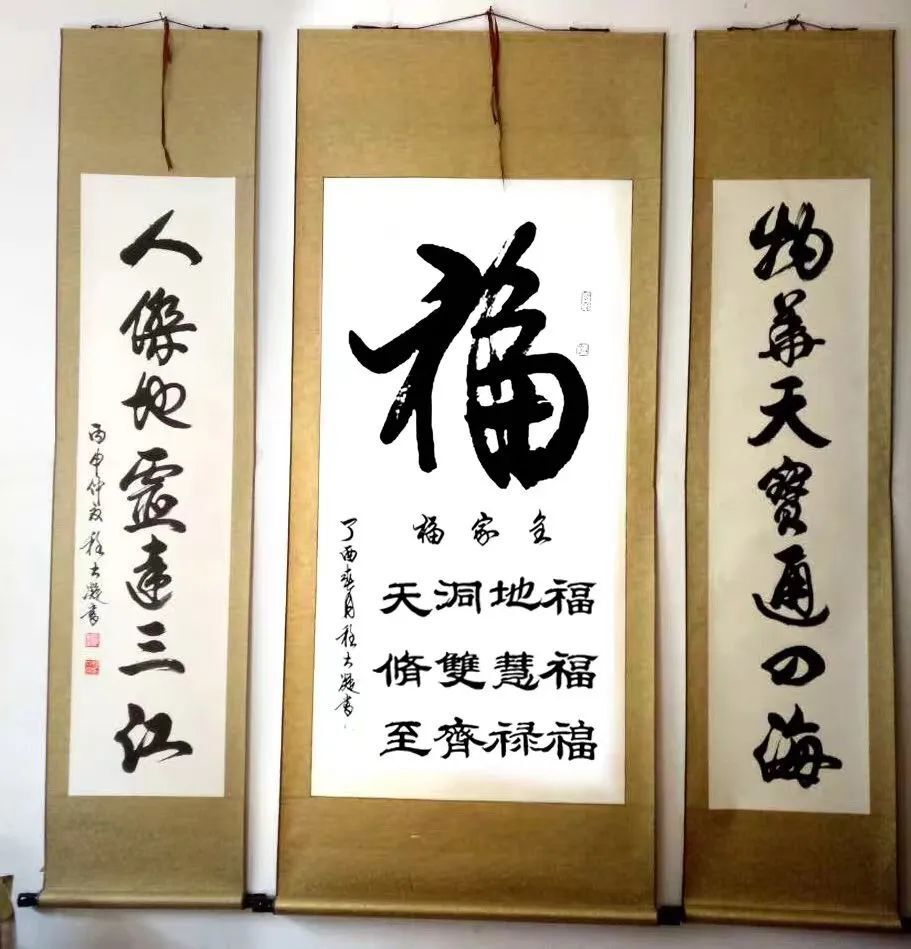 物華天寶通四海
福
全家福
福地洞天
福慧雙脩
福禄齊至
丁酉春月程大凝書
人傑地靈達三江
丙申仲夏程大凝書